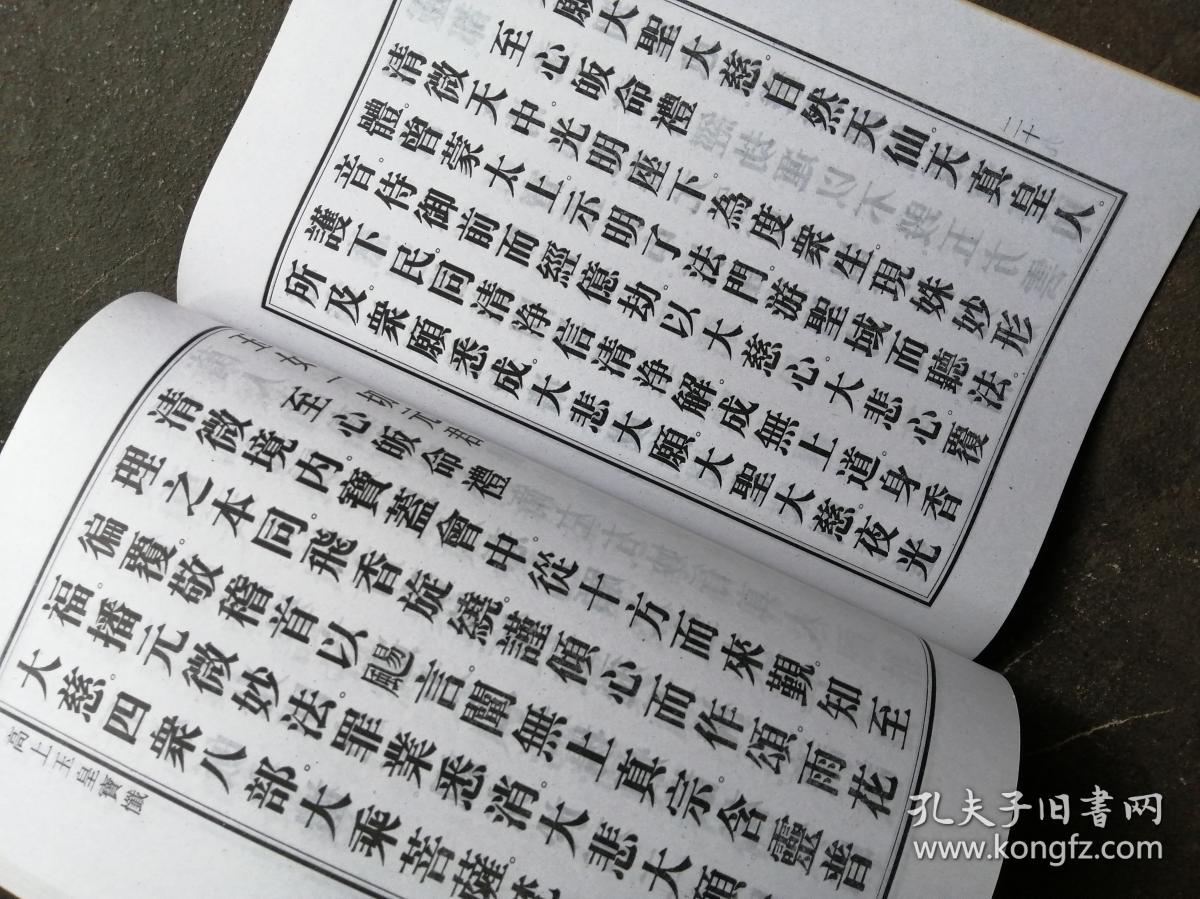 願大聖大慈。自然天仙。天真皇人。
至心皈命禮
清微天中。光明座下。為度衆生。現姝妙形
體。曾蒙太上。示明了法門。游聖域而聽法。
音。侍御前而經億劫。以大慈心。大悲心。覆
護下民。同清淨信。清淨解。成無上道。身香
所及。衆願悉成。大悲大願。大聖大慈。夜光
二十
至心皈命禮
清微境内。寶蓋會中。從十方而來覲。知至
理之本同。飛香旋繞。謹傾心而作頌。雨花
偏覆。敬稽首以颺言。闡無上真宗。含靈普
福。播元微妙法。罪業悉消。大悲大願
大慈。四衆八部。大乘菩薩。
高上玉皇寶懺
孔夫子旧書网
www.kongfz.com